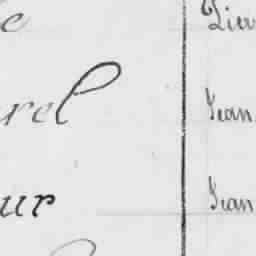 e
rel Jean
ur Jean